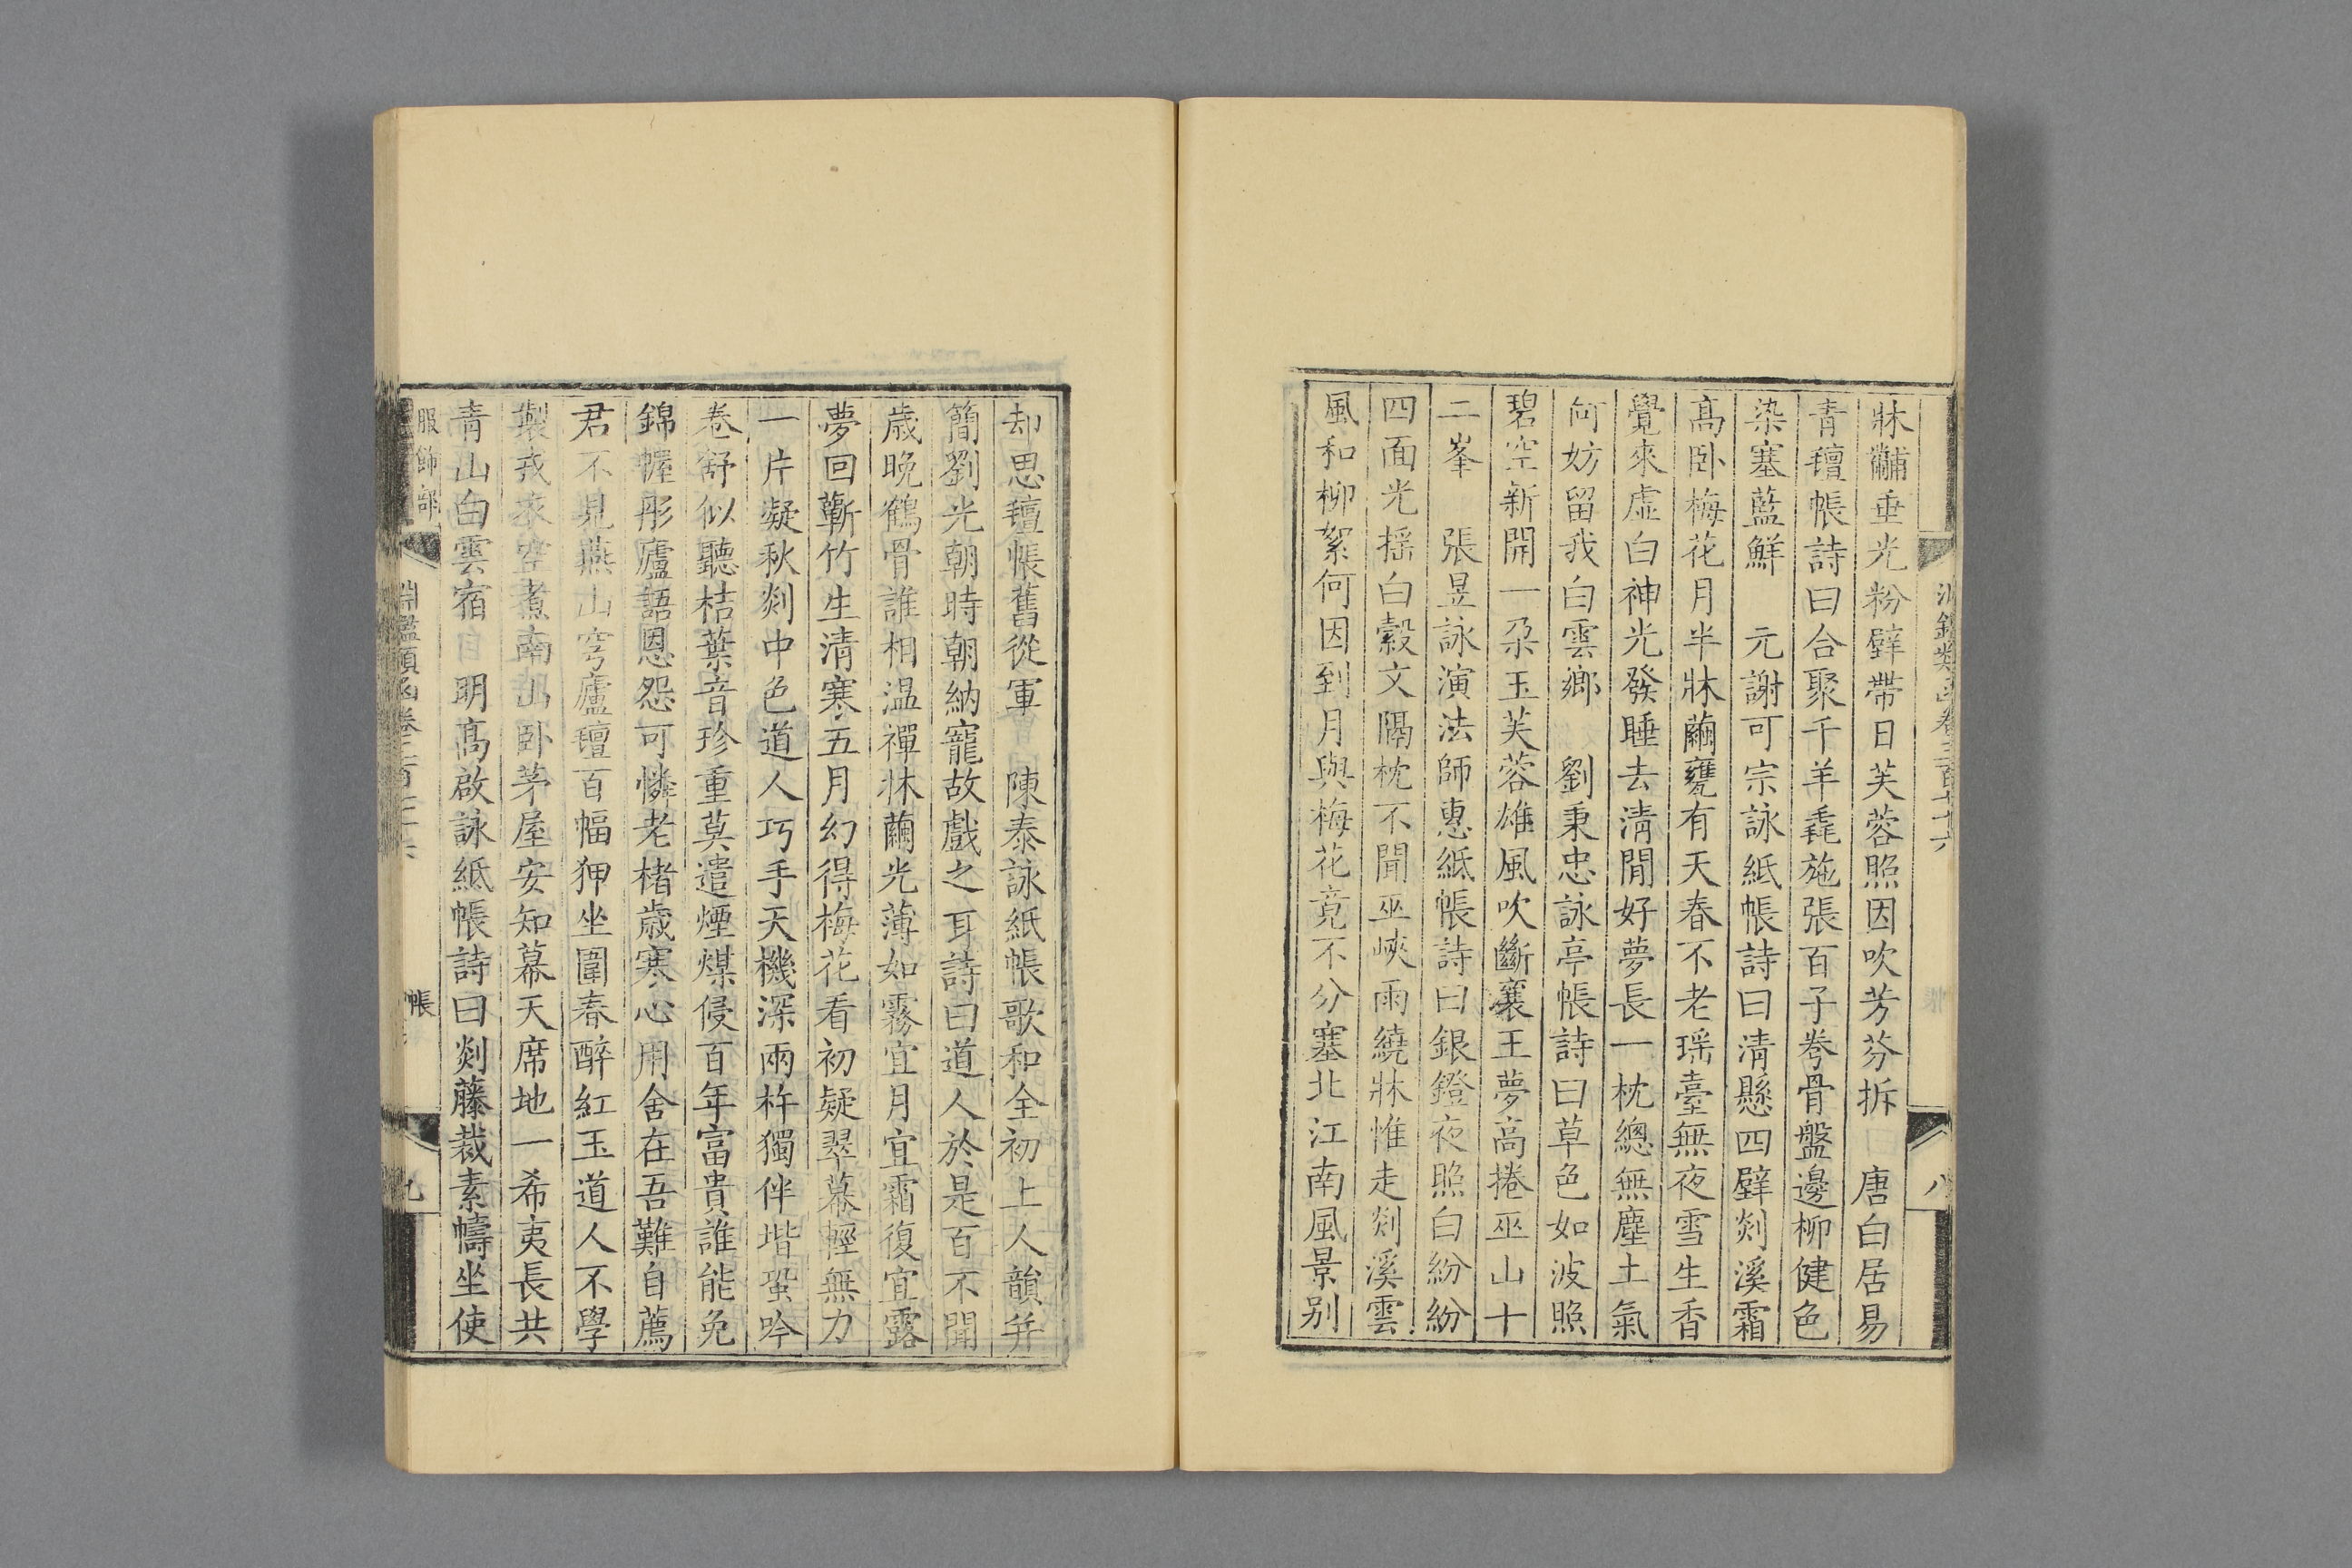 牀黼垂光粉壁帶日芙蓉照因吹芳芬拆 唐白居易
青氊帳詩曰合聚千羊毳施張百子弮骨盤邊柳健色
染塞藍鮮 元謝可宗詠紙帳詩曰清懸四壁剡溪霜
高卧梅花月半牀繭甕有天春不老瑶臺無夜雪生香
覺來虛白神光發睡去清閒好夢長一枕總無塵土氣
何妨留我白雲鄉 劉秉忠詠亭帳詩曰草色如波照
碧空新開一朶玉芙蓉雄風吹斷襄王夢高捲巫山十
二峯 張昱詠演法師惠紙帳詩曰銀鐙夜照白紛紛
四面光摇白縠文隔枕不聞巫峽雨繞牀惟走剡溪雲
風和柳絮何因到月與梅花竟不分塞北江南風景别
却思氊帳舊從軍 陳泰詠紙帳歌和全初上人韻并
簡劉光朝時朝納寵故戲之耳詩曰道人於是百不聞
歲晚鶴骨誰相温禪牀繭光薄如霧宜月宜霜復宜露
夢回蘄竹生清寒五月幻得梅花看初疑翠幕輕無力
一片凝秋剡中色道人巧手天機深兩杵獨伴堦蛩吟
卷舒似聽桔葉音珍重莫遣煙煤侵百年富貴誰能免
錦幄彤廬語恩怨可憐老楮歲寒心用舍在吾難自薦
君不見燕山穹廬氊百幅狎坐圍春醉紅玉道人不學
製我衣空煮南山卧茅屋安知幕天席地一希夷長共
青山白雲宿 明高啟詠紙帳詩曰剡藤裁素幬坐使
服飾部
淵鑑類函卷三百七十六
帳
九